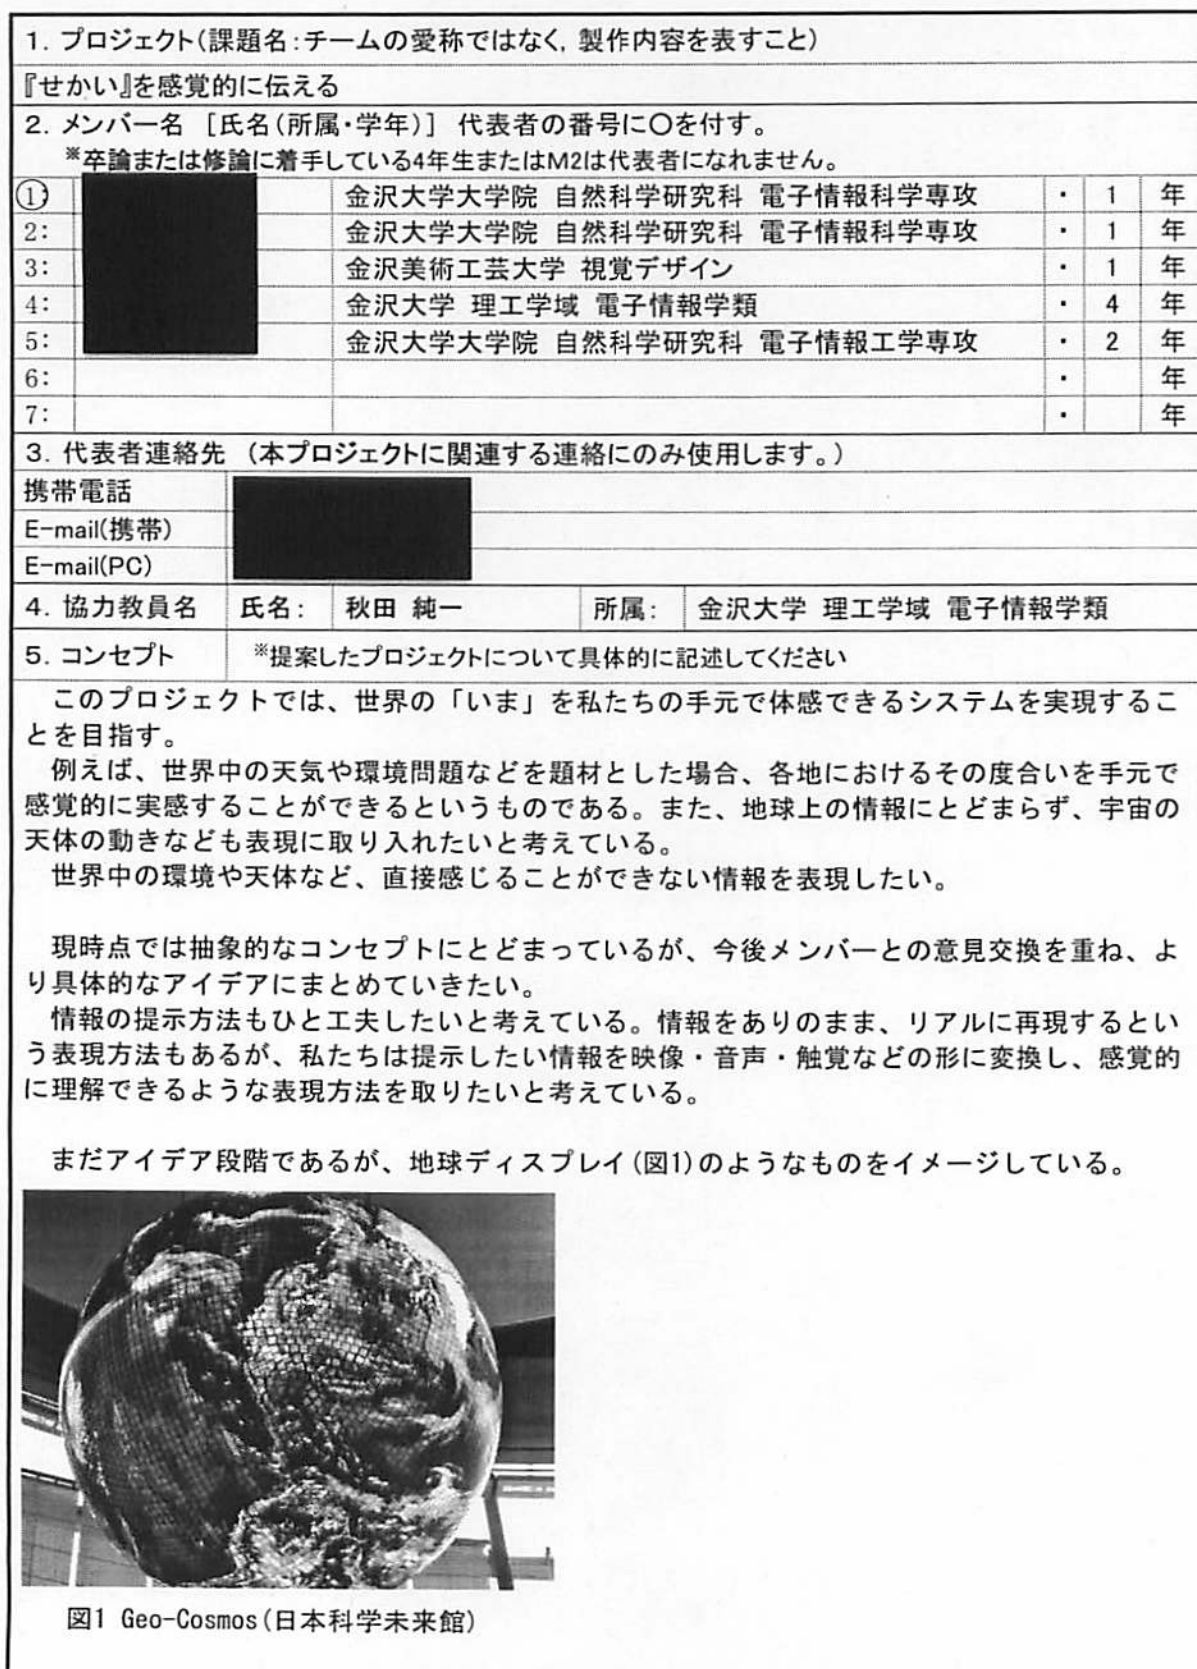 1. プロジェクト(課題名:チームの愛称ではなく, 製作内容を表すこと)
『せかい』を感覚的に伝える
2. メンバー名 [氏名(所属・学年)] 代表者の番号に○を付す。
※卒論または修論に着手している4年生またはM2は代表者になれません。
①: 金沢大学大学院 自然科学研究科 電子情報科学専攻 ・ 1 年
2: 金沢大学大学院 自然科学研究科 電子情報科学専攻 ・ 1 年
3: 金沢美術工芸大学 視覚デザイン ・ 1 年
4: 金沢大学 理工学域 電子情報学類 ・ 4 年
5: 金沢大学大学院 自然科学研究科 電子情報工学専攻 ・ 2 年
6: ・ 年
7: ・ 年
3. 代表者連絡先 (本プロジェクトに関連する連絡にのみ使用します。)
携帯電話
E-mail(携帯)
E-mail(PC)
4. 協力教員名 氏名: 秋田 純一 所属: 金沢大学 理工学域 電子情報学類
5. コンセプト ※提案したプロジェクトについて具体的に記述してください
このプロジェクトでは、世界の「いま」を私たちの手元で体感できるシステムを実現するこ
とを目指す。
例えば、世界中の天気や環境問題などを題材とした場合、各地におけるその度合いを手元で
感覚的に実感することができるというものである。また、地球上の情報にとどまらず、宇宙の
天体の動きなども表現に取り入れたいと考えている。
世界中の環境や天体など、直接感じることができない情報を表現したい。
現時点では抽象的なコンセプトにとどまっているが、今後メンバーとの意見交換を重ね、よ
り具体的なアイデアにまとめていきたい。
情報の提示方法もひと工夫したいと考えている。情報をありのまま、リアルに再現するとい
う表現方法もあるが、私たちは提示したい情報を映像・音声・触覚などの形に変換し、感覚的
に理解できるような表現方法を取りたいと考えている。
まだアイデア段階であるが、地球ディスプレイ(図1)のようなものをイメージしている。
図1 Geo-Cosmos(日本科学未来館)